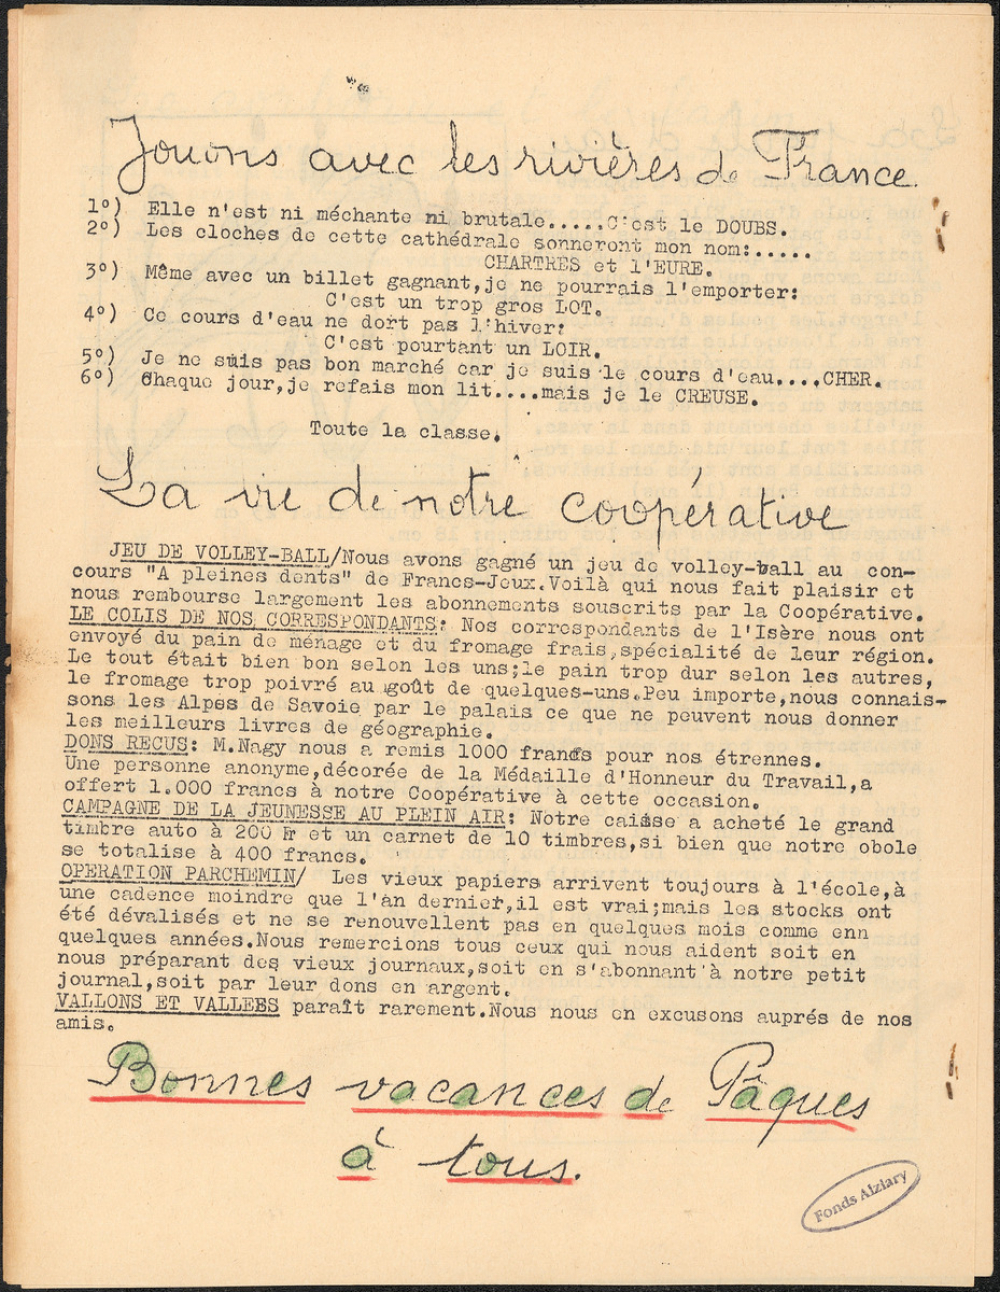 Jouons avec les rivières de France.
1°) Elle n'est ni méchante ni brutale.....C'est le DOUBS.
2°) Les cloches de cette cathédrale sonneront mon nom:.....
CHARTRES et l'EURE.
3°) Même avec un billet gagnant,je ne pourrais l'emporter:
C'est un trop gros LOT.
4°) Ce cours d'eau ne dort pas l'hiver:
C'est pourtant un LOIR.
5°) Je ne suis pas bon marché car je suis le cours d'eau....CHER.
6°) Chaque jour,je refais mon lit....mais je le CREUSE.
Toute la classe.
La vie de notre coopérative
JEU DE VOLLEY-BALL/Nous avons gagné un jeu de volley-ball au con-
cours "A pleines dents" de Francs-Jeux.Voilà qui nous fait plaisir et
nous rembourse largement les abonnements souscrits par la Coopérative.
LE COLIS DE NOS CORRESPONDANTS: Nos correspondants de l'Isère nous ont
envoyé du pain de ménage et du fromage frais,spécialité de leur région.
Le tout était bien bon selon les uns;le pain trop dur selon les autres,
le fromage trop poivré au goût de quelques-uns.Peu importe,nous connais-
sons les Alpes de Savoie par le palais ce que ne peuvent nous donner
les meilleurs livres de géographie.
DONS RECUS: M.Nagy nous a remis 1000 francs pour nos étrennes.
Une personne anonyme,décorée de la Médaille d'Honneur du Travail,a
offert 1.000 francs à notre Coopérative à cette occasion.
CAMPAGNE DE LA JEUNESSE AU PLEIN AIR: Notre caisse a acheté le grand
timbre auto à 200 Fr et un carnet de 10 timbres,si bien que notre obole
se totalise à 400 francs.
OPERATION PARCHEMIN/ Les vieux papiers arrivent toujours à l'école,à
une cadence moindre que l'an dernier,il est vrai;mais les stocks ont
été dévalisés et ne se renouvellent pas en quelques mois comme enn
quelques années.Nous remercions tous ceux qui nous aident soit en
nous préparant des vieux journaux,soit en s'abonnant à notre petit
journal,soit par leur dons en argent.
VALLONS ET VALLEES paraît rarement.Nous nous en excusons auprés de nos
amis.
Bonnes vacances de Pâques
à tous.
Fonds Alziary